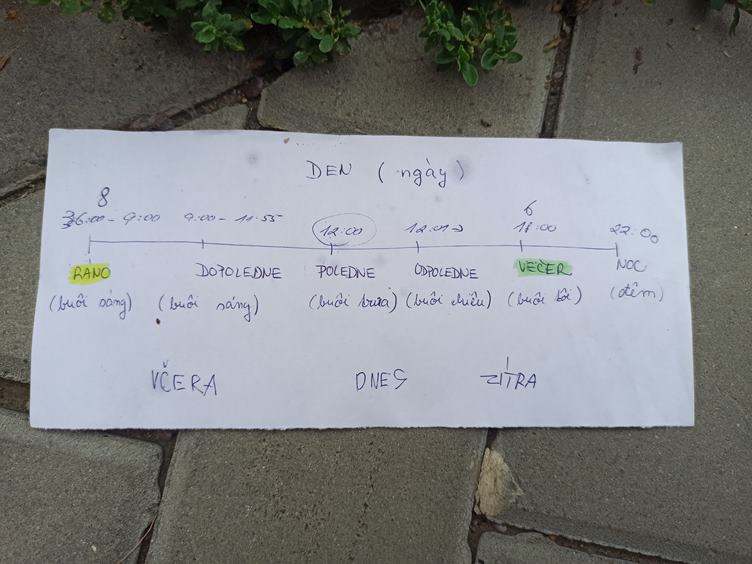 DEN (ngày)
8 6
6:00 - 9:00 9:00 - 11:55 12:00 12:01 18:00 22:00
RANO DOPOLEDNE POLEDNE ODPOLEDNE VEČER NOC
(buổi sáng) (buổi sáng) (buổi trưa) (buổi chiều) (buổi tối) (đêm)
VČERA DNES ZÍTRA